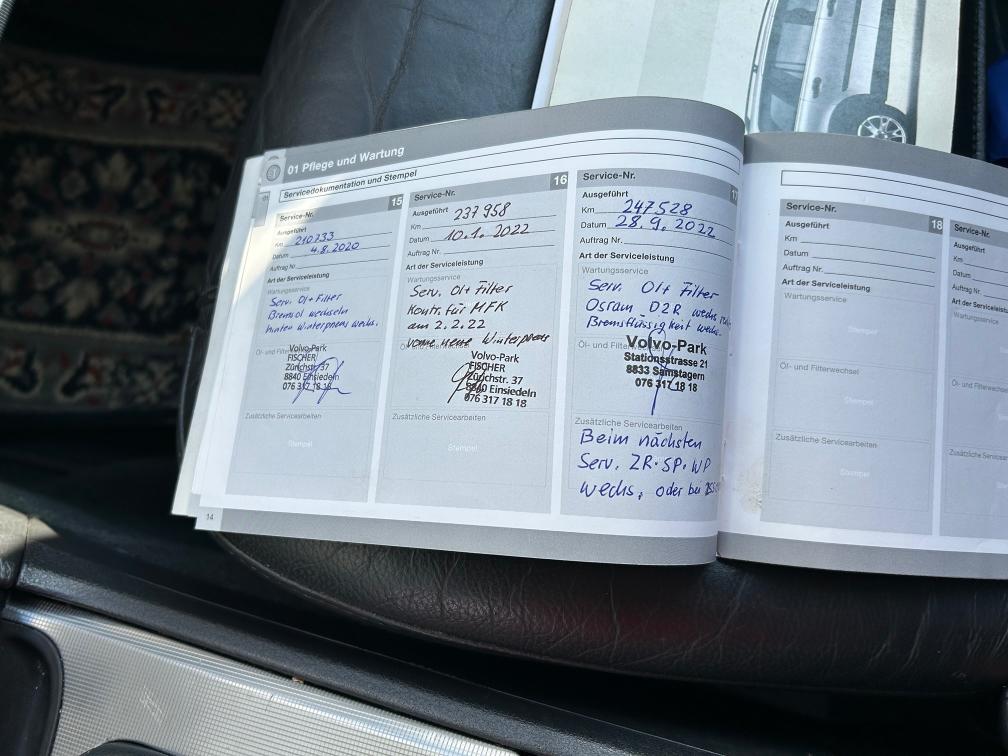 01 Pflege und Wartung
Servicedokumentation und Stempel
Service-Nr. 15
Ausgeführt
Km 210733
Datum 4.8.2020
Auftrag Nr.
Art der Serviceleistung
Wartungsservice
Serv. Öl+Filter
Bremsöl wechseln
hinten Winterpneus wechs.
Öl- und Filterwechsel
Volvo-Park
FISCHER
Zürichstr. 37
8840 Einsiedeln
076 317 18 18
Zusätzliche Servicearbeiten
Stempel
14
Service-Nr. 16
Ausgeführt
Km 237958
Datum 10.1.2022
Auftrag Nr.
Art der Serviceleistung
Wartungsservice
Serv. Öl+Filter
Kontr. für MFK
am 2.2.22
vorne neue Winterpneus
Volvo-Park
FISCHER
Zürichstr. 37
8840 Einsiedeln
076 317 18 18
Zusätzliche Servicearbeiten
Stempel
Service-Nr. 17
Ausgeführt
Km 247528
Datum 28.9.2022
Auftrag Nr.
Art der Serviceleistung
Wartungsservice
Serv. Öl+Filter
Osram D2R wechs.
Bremsflüssigkeit wechs.
Öl- und Filterwechsel
Volvo-Park
Stationsstrasse 21
8833 Samstagern
076 317 18 18
Zusätzliche Servicearbeiten
Beim nächsten
Serv. ZR·SP·WP
wechs, oder bei
Service-Nr. 18
Km
Datum
Auftrag Nr.
Art der Serviceleistung
Wartungsservice
Stempel
Öl- und Filterwechsel
Stempel
Zusätzliche Servicearbeiten
Stempel
Service-Nr.
Ausgeführt
Km
Datum
Auftrag Nr.